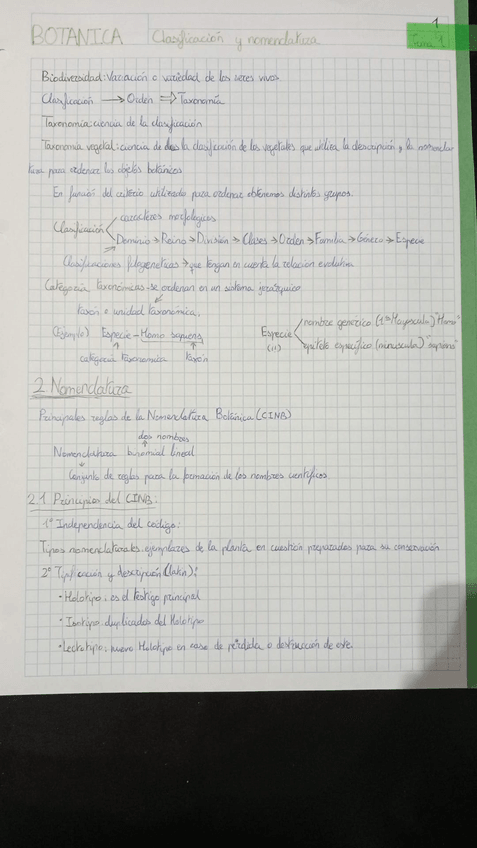 1
BOTANICA Clasificación y nomenclatura Tema 1
Biodiversidad: Variación o variedad de los seres vivos.
Clasificación → Orden ⇒ Taxonomía
Taxonomía: ciencia de la clasificación
Taxonomía vegetal: ciencia de la clasificación de los vegetales que utiliza la descripción y la nomencla
tura para ordenar los objetos botánicos
En función del criterio utilizado para ordenar obtenemos distintos grupos.
caracteres morfológicos
Clasificación
Dominio → Reino → División → Clases → Orden → Familia → Género → Especie
Clasificaciones filogenéticas → que tengan en cuenta la relación evolutiva
Categoría taxonómicas - se ordenan en un sistema jerárquico
taxón o unidad taxonómica.
nombre genérico (1ª Mayúscula) "Homo"
(Ejemplo) Especie - Homo sapiens Especie
epíteto específico (minúscula) "sapiens"
categoría taxonómica taxón
2 Nomenclatura
Principales reglas de la Nomenclatura Botánica (CINB)
dos nombres
Nomenclatura binomial lineal
Conjunto de reglas para la formación de los nombres científicos
2.1 Principios del CINB:
1º Independencia del código:
Tipos nomenclaturales: ejemplares de la planta en cuestión preparados para su conservación
2º Tipificación y descripción (latín):
• Holotipo: es el testigo principal
• Isotipo: duplicados del Holotipo
• Lectotipo: nuevo Holotipo en caso de pérdida o destrucción de este.